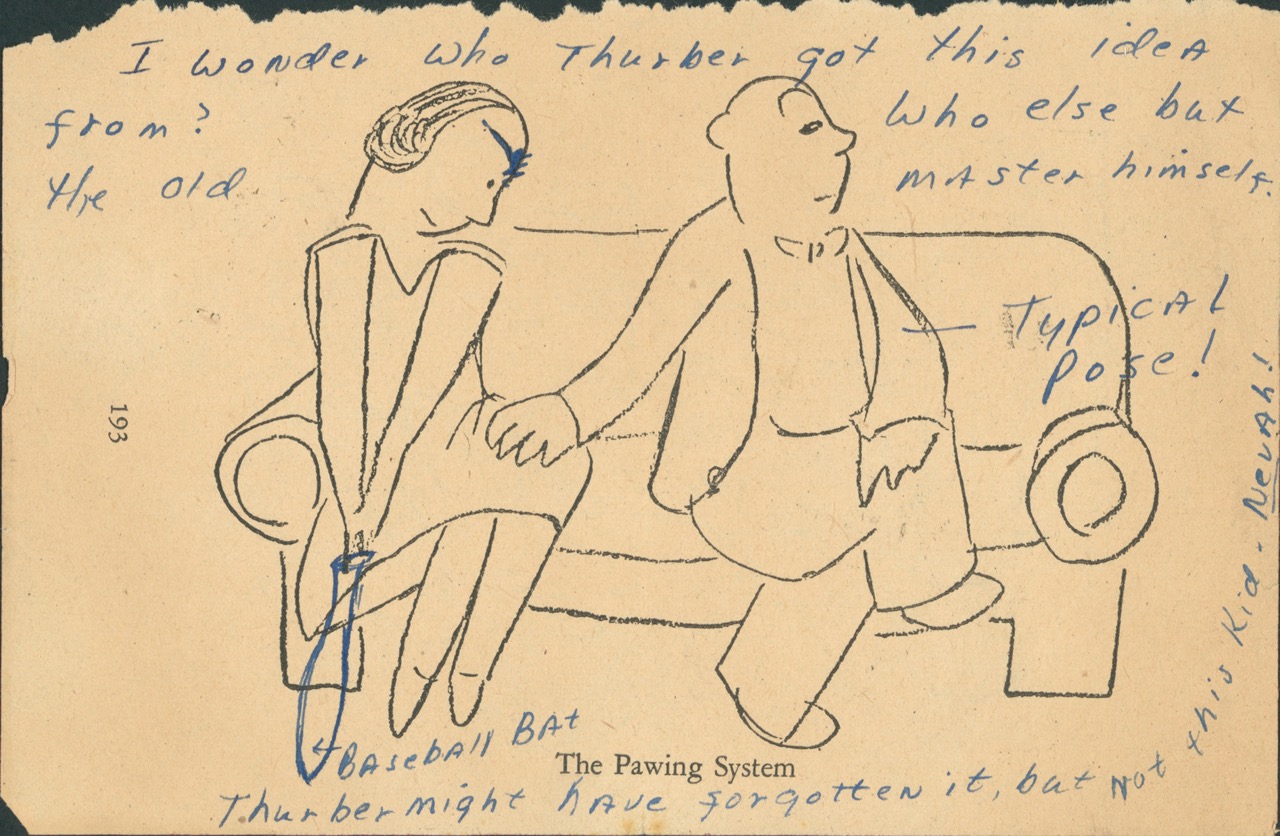 I wonder who Thurber got this idea
from? Who else but
the old master himself.
— Typical
pose!
193
Baseball Bat
The Pawing System
Thurber might have forgotten it, but Not this kid - Nevah!